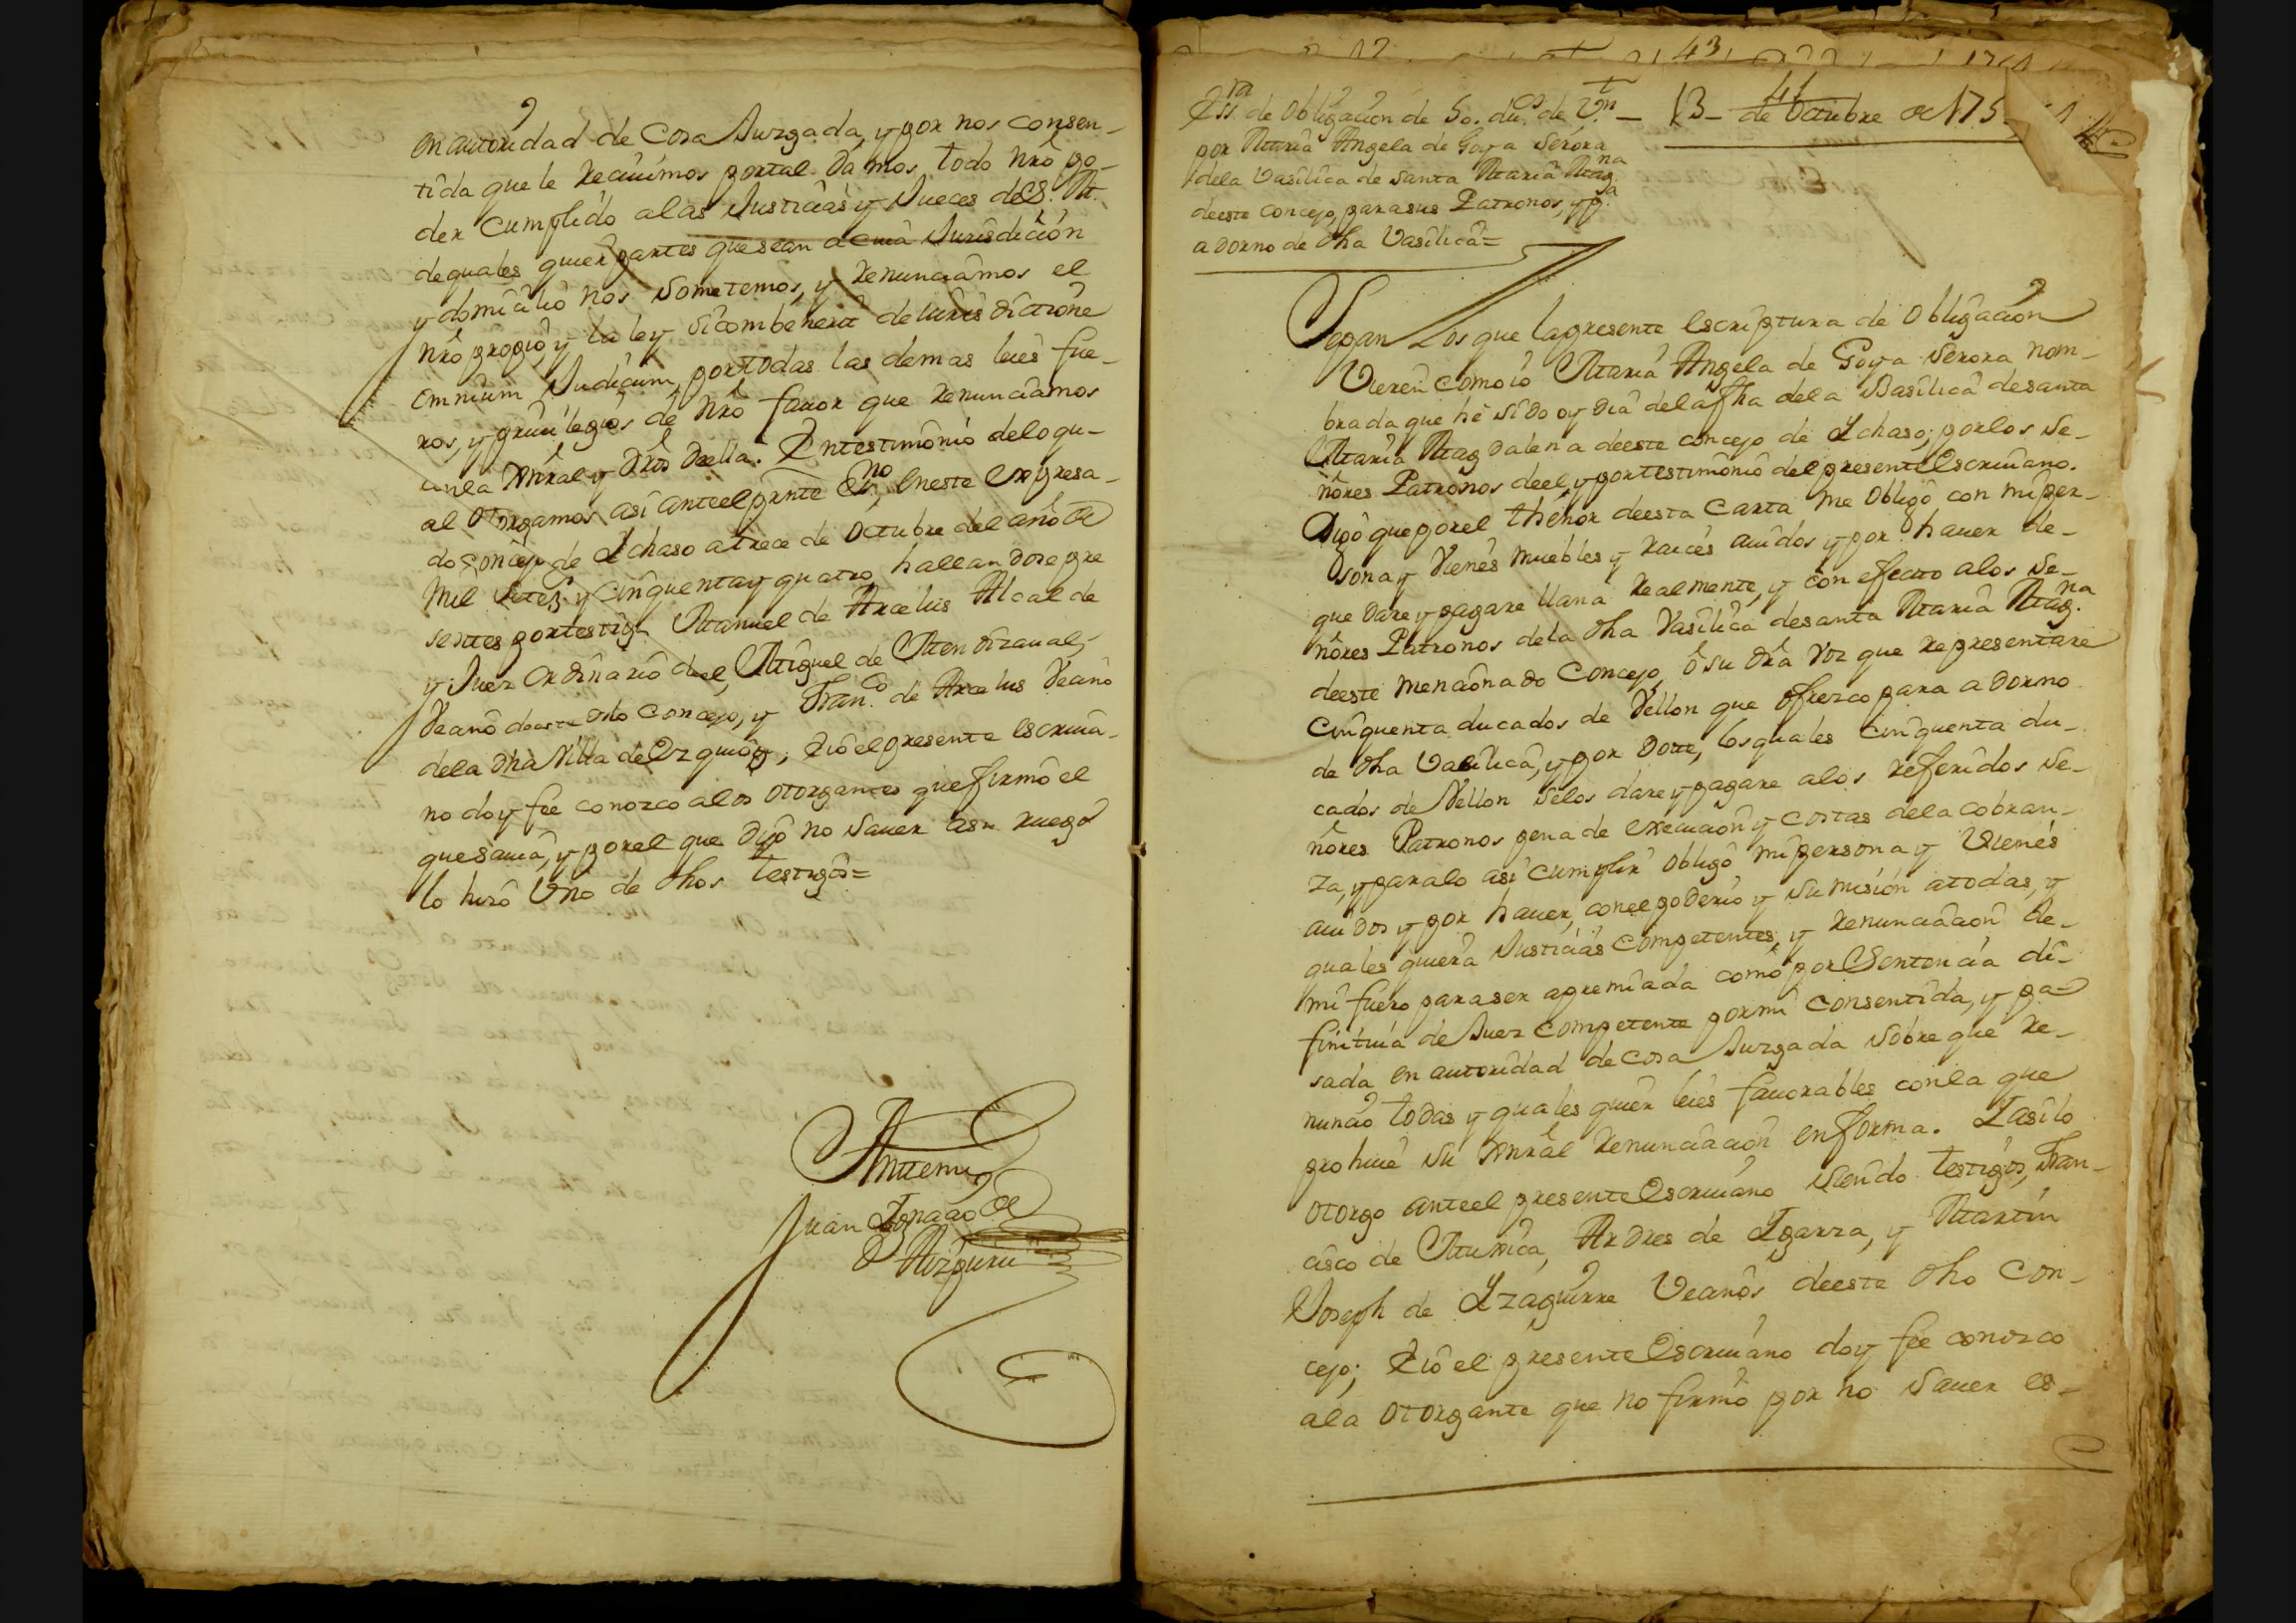 en autoridad de Cosa Juzgada, y por nos consen-
tida que le recivimos por tal. Damos todo nrô po-
der Cumplido a las Justicias y Jueces de S. M.
de quales quier partes que sean a cuia Jurisdicion
y domicilio nos sometemos, y renunciamos el
nrô propio, y la ley sicombenerit de iurisdictione
omnium Judicum, por todas las demas leies fue-
ros, y privilegios de nrô favor que renunciamos
con la Genrâl y drôs de ella. En testimonio de lo qu-
al otorgamos asi ante el prnte Esno. en este expresa-
do Concejo de Ichaso a trece de Octubre del año de
mil setezs. y cinquenta y quatro, hallandose pre
sentes por testigs. Manuel de Arcelus Alcalde
y Juez ordinario de el, Miguel de Mendizaval,
Vecino de este dho Concejo, y Franco. de Arcelus Vecino
de la dha Villa de Ezquioga; E io el presente escriva-
no doy fee conozco a los otorgantes que firmô el
que savia, y por el que dijo no saver a su ruego
lo hizo Uno de dhos testigos=
Ante mi
Juan Ignacio de
Aizpuru
43
44
Essra. de obligacion de 50. dus. de Vn. — 13 - de Octubre de 175
por Maria Angela de Goya serora
de la Vasilica de santa Maria Magna.
de este concejo, para sus Patronos, y pa.
adorno de dha Vasilica=
Sepan Los que la presente escriptura de obligacion
Vieren como io Maria Angela de Goya serora nom-
brada que hê sido oy dia de la fha de la Basilica de santa
Maria Magdalena de este concejo de Ichaso; por los se-
ñores Patronos de el, y por testimonio del presente Escrivano.
Digo que por el thenor de esta Carta me obligo con mi per-
sona y Vienes muebles y raices avidos y por haver de-
que dare y pagare llana realmente, y con efecto a los se-
ñores Patronos de la dha Vasilica de santa Maria Magna.
de este mencionado Concejo, ô su dra Voz que representare
cinquenta ducados de Vellon que ofrezco para adorno
de dha Vasilica, y por dote, los quales cinquenta du-
cados de Vellon se los dare y pagare a los referidos se-
ñores Patronos pena de execucion y costas de la cobran-
za, y para lo asi cumplir obligo mi persona y Vienes
avidos y por haver, con el poderio y sumision a todas, y
quales quiera Justicias competentes, y renunciacion de-
mi fuero para ser apremiada como por Sentencia di-
finitiva de Juez competente por mi consentida, y pa-
sada en autoridad de cosa Juzgada sobre que re-
nuncio todas y quales quier leies favorables con la que
prohive su Genrâl renunciacion en forma. I asi lo
otorgo ante el presente Escrivano siendo testigos, Fran-
cisco de Munica, Andres de Igarza, y Martin
Joseph de Izaguirre Vecinos de este dho Con-
cejo; E io el presente Escrivano doy fee conozco
a la otorgante que no firmô por no saver es-